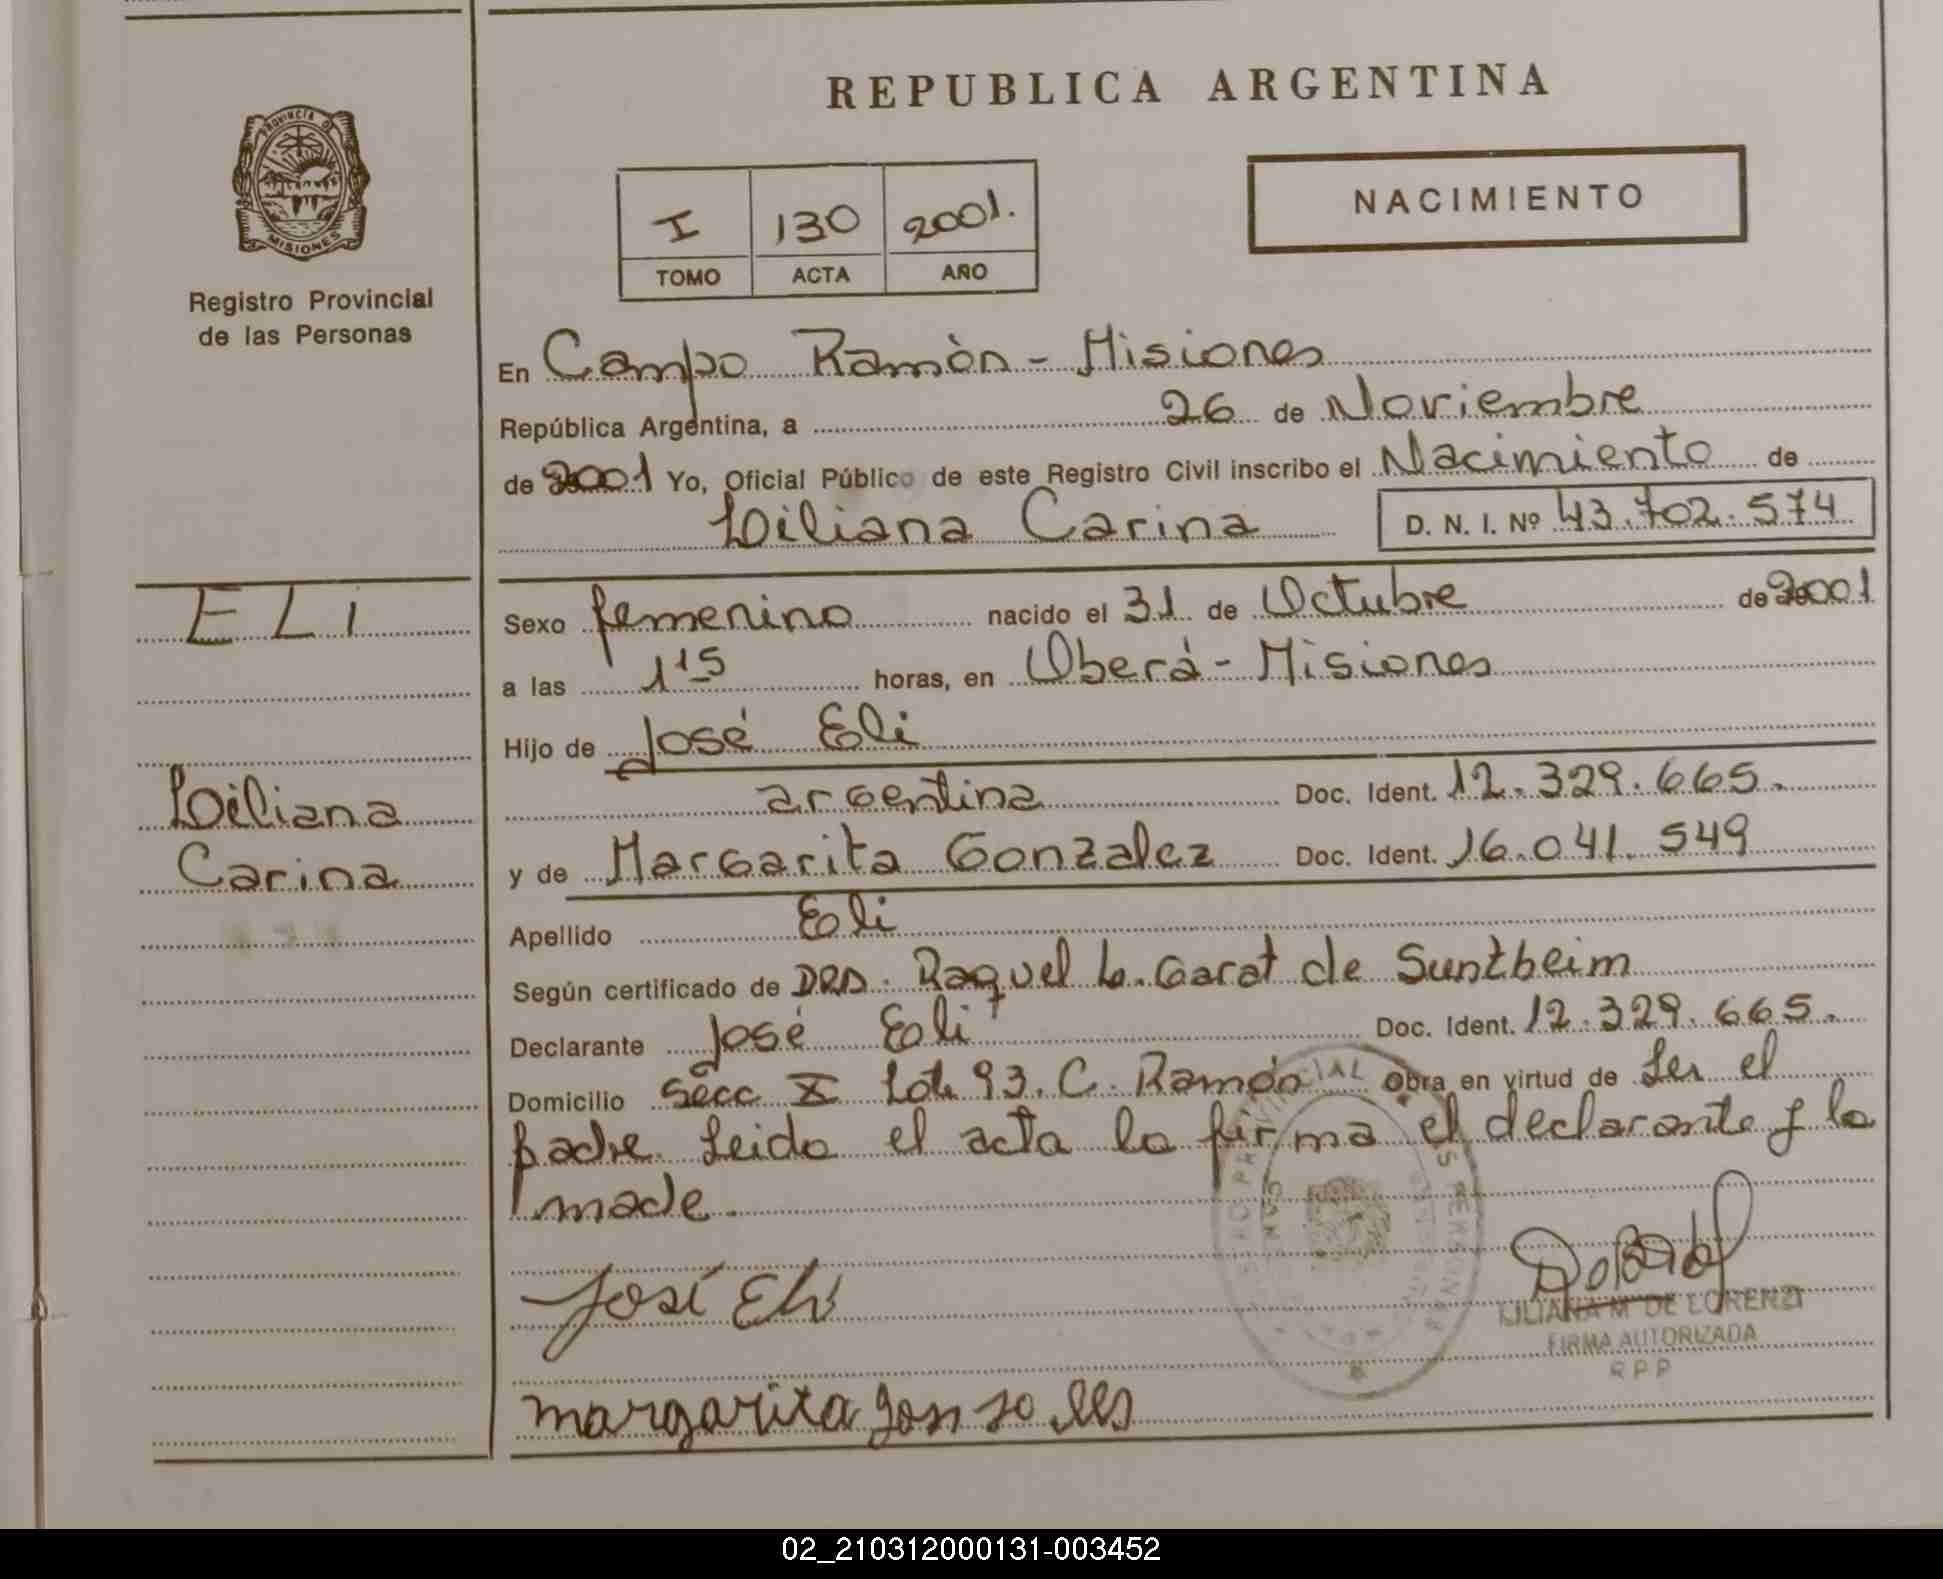 REPUBLICA ARGENTINA
PROVINCIA DE
MISIONES
Registro Provincial
de las Personas
I 130 2001.
TOMO ACTA AÑO
NACIMIENTO
En Campo Ramòn - Misiones
República Argentina, a 26 de Noviembre
de 2001 Yo, Oficial Público de este Registro Civil inscribo el Nacimiento de
Liliana Carina D. N. I. Nº 43.702.574
ELI
Sexo femenino nacido el 31 de Octubre de 2001
a las 1 15 horas, en Oberá - Misiones
Hijo de José Eli
Liliana
argentina Doc. Ident. 12.329.665.
Carina
y de Margarita Gonzalez Doc. Ident. 16.041.549
Apellido Eli
Según certificado de DRA. Raquel L. Garat de Suntheim
Declarante José Eli Doc. Ident. 12.329.665.
Domicilio Secc X Lote 93. C. Ramón obra en virtud de Ser el
padre. Leido el acta la firma el declarante y la
made.
José Eli
LILIANA M DE LORENZI
FIRMA AUTORIZADA
R P P
margarita gonsoles
02_210312000131-003452